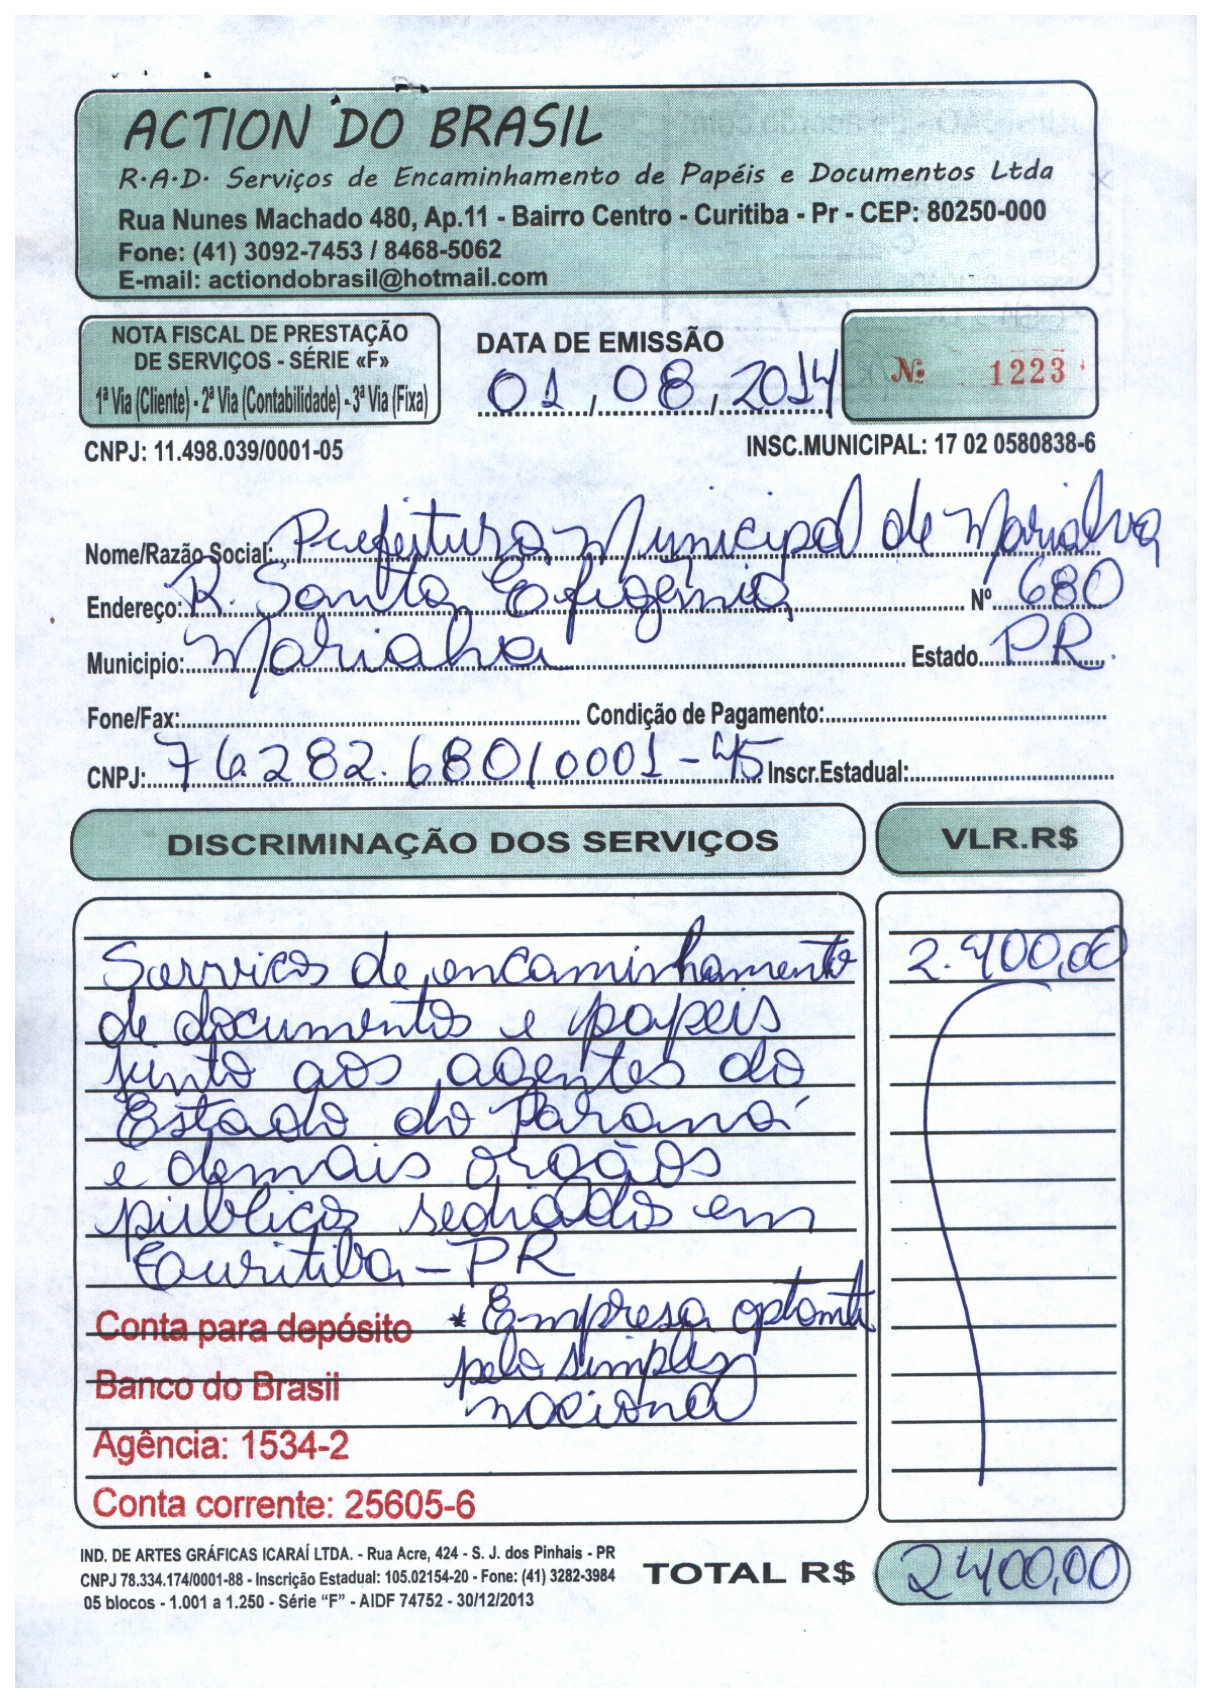 ACTION DO BRASIL
R.A.D. Serviços de Encaminhamento de Papéis e Documentos Ltda
Rua Nunes Machado 480, Ap.11 - Bairro Centro - Curitiba - Pr - CEP: 80250-000
Fone: (41) 3092-7453 / 8468-5062
E-mail: actiondobrasil@hotmail.com
NOTA FISCAL DE PRESTAÇÃO
DE SERVIÇOS - SÉRIE «F»
1ª Via (Cliente) - 2ª Via (Contabilidade) - 3ª Via (Fixa)
DATA DE EMISSÃO
01 / 08 / 2014
Nº 1223
CNPJ: 11.498.039/0001-05
INSC.MUNICIPAL: 17 02 0580838-6
Nome/Razão Social: Prefeitura Municipal de Marialva
Endereço: R. Santa Efigênia Nº 680
Municipio: Marialva Estado PR.
Fone/Fax: Condição de Pagamento:
CNPJ: 76.282.680/0001-45 Inscr.Estadual:
DISCRIMINAÇÃO DOS SERVIÇOS VLR.R$
Serviços de encaminhamento 2.400,00
de documentos e papeis
junto aos agentes do
Estado do Paraná
e demais órgãos
públicos sediados em
Curitiba - PR
Conta para depósito * Empresa optante
Banco do Brasil pelo simples
nacional
Agência: 1534-2
Conta corrente: 25605-6
IND. DE ARTES GRÁFICAS ICARAÍ LTDA. - Rua Acre, 424 - S. J. dos Pinhais - PR
CNPJ 78.334.174/0001-88 - Inscrição Estadual: 105.02154-20 - Fone: (41) 3282-3984
05 blocos - 1.001 a 1.250 - Série “F” - AIDF 74752 - 30/12/2013
TOTAL R$ 2.400,00